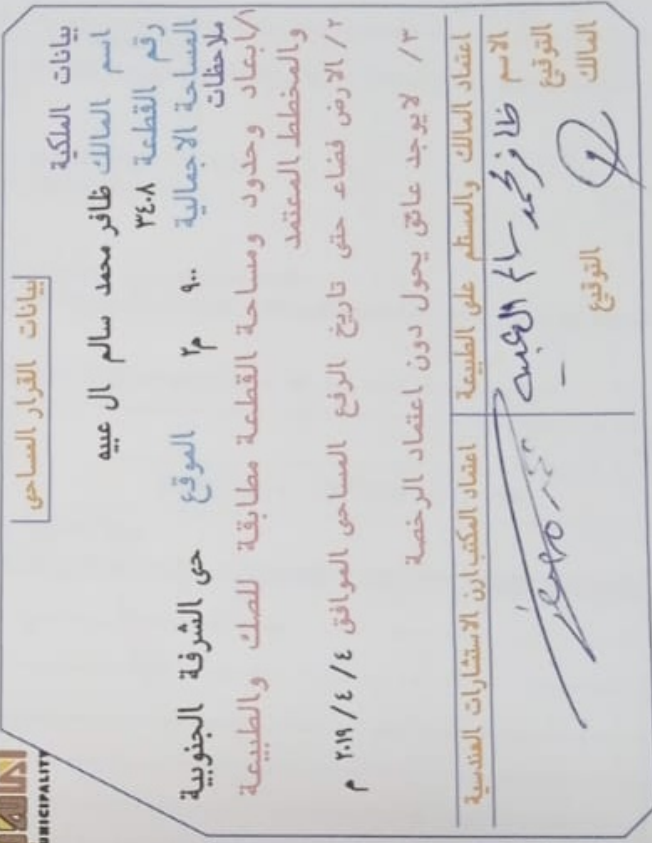 UNICIPALITY
بيانات القرار المساحى
بيانات الملكية
اسم المالك ظافر محمد سالم ال عبيه
رقم القطعة ٣٤٠٨
المساحة الاجمالية ٩٠٠ م٢ الموقع حى الشرفة الجنوبية
ملاحظات
١/ابعاد وحدود ومساحة القطعة مطابقة للصك والطبيعة
والمخطط المعتمد
٢/ الارض فضاء حتى تاريخ الرفع المساحى الموافق ٤ / ٤ / ٢٠١٩ م
٣/ لايوجد عائق يحول دون اعتماد الرخصة
اعتماد المالك والمستلم على الطبيعة
اعتماد المكتب ارن الاستشارات الهندسية
الاسم ظافر محمد سالم
التوقيع
المالك
التوقيع